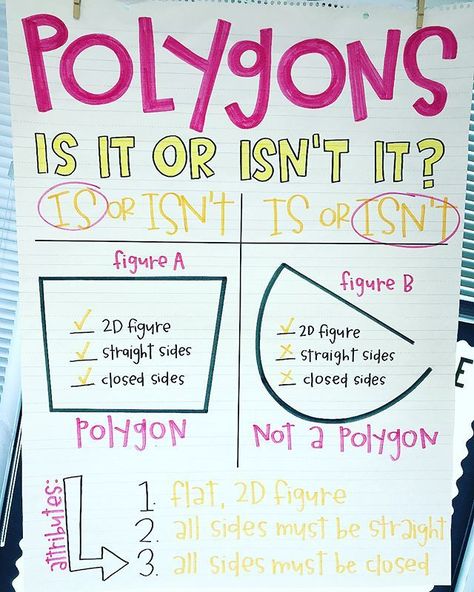 POLYGONS
IS IT OR ISN'T IT?
IS OR ISN'T
IS OR ISN'T
figure A
✓ 2D figure
✓ straight sides
✓ closed sides
POLYGON
figure B
✓ 2D figure
✗ straight sides
✗ closed sides
Not a Polygon
attributes:
1. flat, 2D figure
2. all sides must be straight
3. all sides must be closed